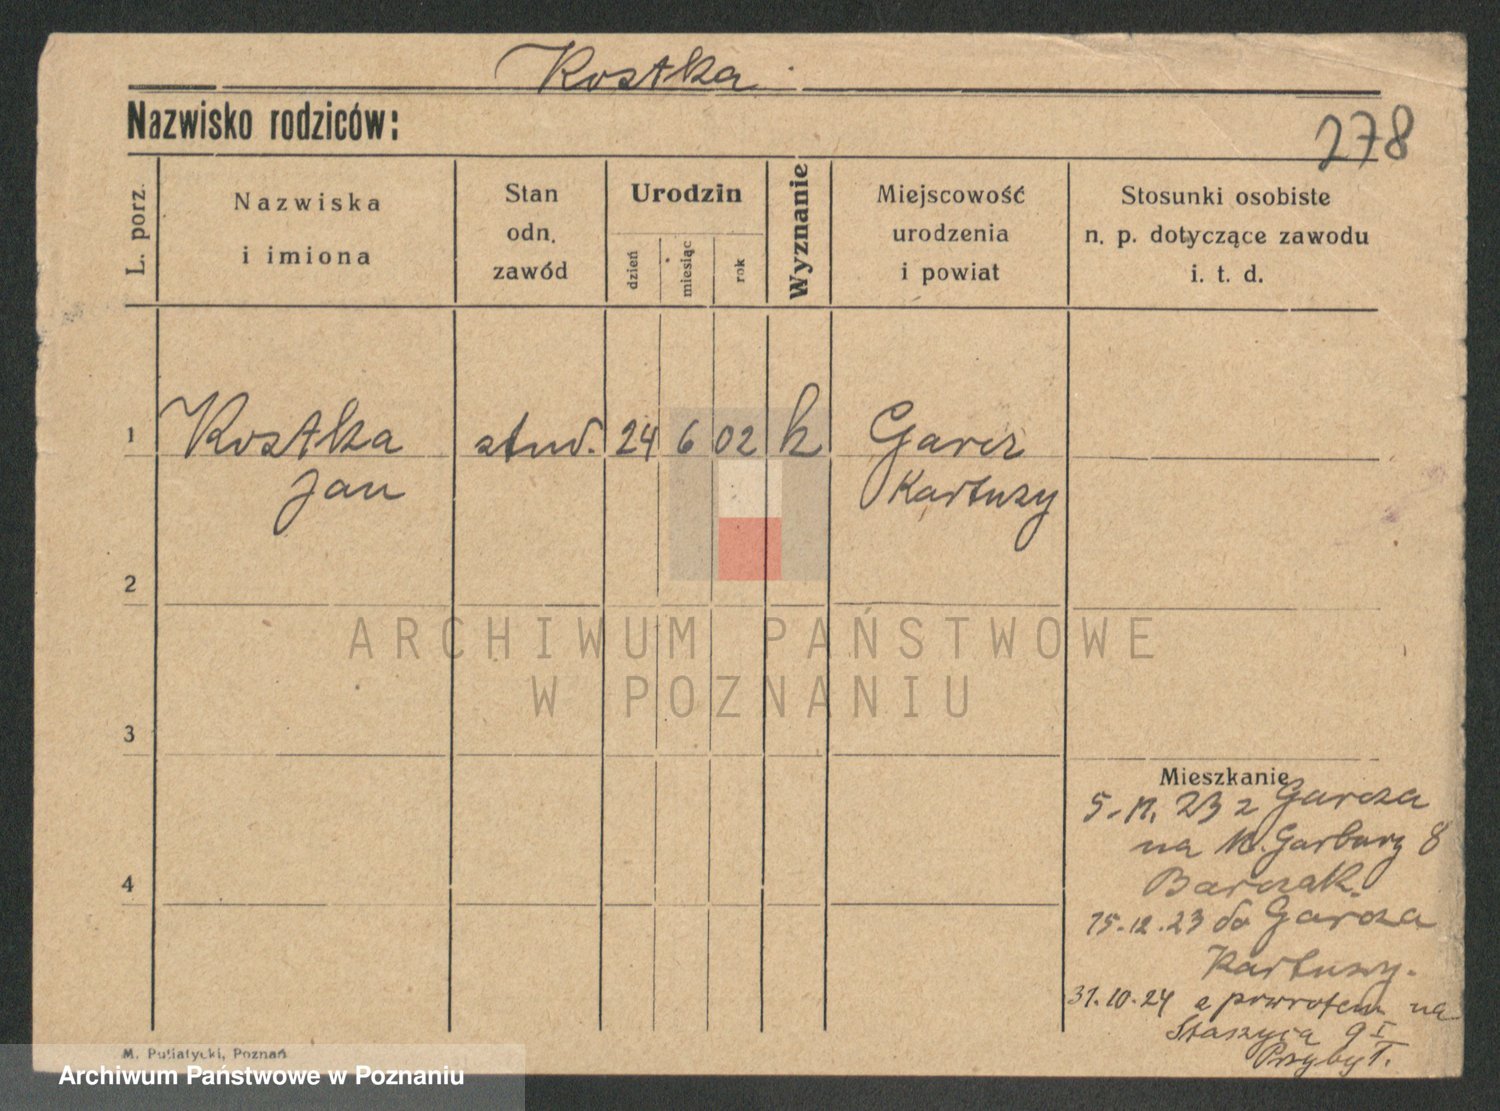 Kostka
Nazwisko rodziców:
278
L. porz.
Nazwiska
i imiona
Stan
odn.
zawód
Urodzin
dzień
miesiąc
rok
Wyznanie
Miejscowość
urodzenia
i powiat
Stosunki osobiste
n. p. dotyczące zawodu
i. t. d.
1 Kostka stud. 24 6 02 k Garcz
Jan Kartuzy
2
ARCHIWUM PAŃSTWOWE
W POZNANIU
3
Mieszkanie
5. 11. 23 z Garcza
na W. Garbary 8
4
Barczak.
15.12.23 do Garcza
Kartuzy.
31.10.24 z powrotem na
Staszyca 9 I
Przybył.
M. Putiatycki, Poznań
Archiwum Państwowe w Poznaniu